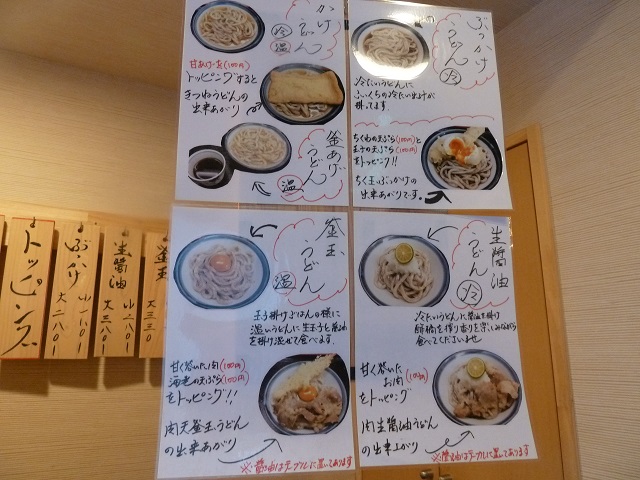 かけ
うどん
冷
温
甘あげ一枚(100円)
トッピングすると
きつねうどんの
出来あがり
釜あげ
うどん
温
ぶっかけ
うどん
冷
冷たいうどんに
冷たい出汁が
掛ってます。
ちくわの天ぷら(100円)と
玉子の天ぷら(100円)
をトッピング!!
ちく玉ぶっかけの
出来あがりです。
釜玉
うどん
温
玉子掛けごはんの様に
温いうどんに生玉子と醤油
を掛け混ぜて食べます。
甘く炊いたお肉(100円)
海老の天ぷら(100円)
をトッピング!!
肉天釜玉うどん
の出来あがり
※醤油はテーブルに置いてあります
生醤油
うどん
冷
冷たいうどんに醤油を掛け
酢橘を搾り香りを楽しみながら
食べてくださいませ
甘く炊いた
お肉(100円)
をトッピング
肉生醤油うどん
の出来上がり
※醤油はテーブルに置いてあります
トッピング
ぶっかけ
小一八〇
大二八〇
生醤油
小一八〇
大二八〇
釜玉
大三三〇